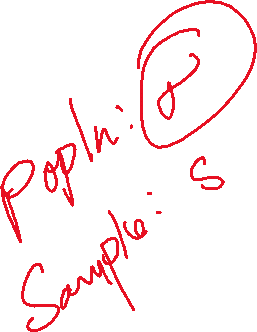 Popln: σ
Sample: s